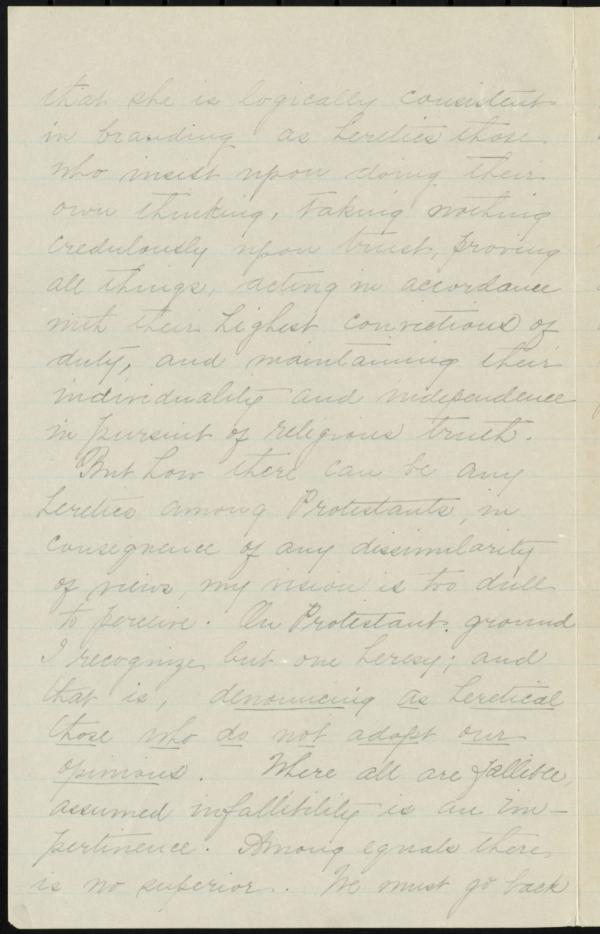 that she is logically consistent
in branding as heretics those
who insist upon doing their
own thinking, taking nothing
credulously upon trust, proving
all things, acting in accordance
with their highest convictions of
duty, and maintaining their
individuality and independence
in pursuit of religious truth.
But how there can be any
heretics among Protestants, in
consequence of any dissimilarity
of views, my vision is too dull
to perceive. On Protestant ground
I recognize but one heresy; and
that is, denouncing as heretical
those who do not adopt our
opinions. Where all are fallible,
assumed infallibility is an im-
pertinence. Among equals there
is no superior. We must go back